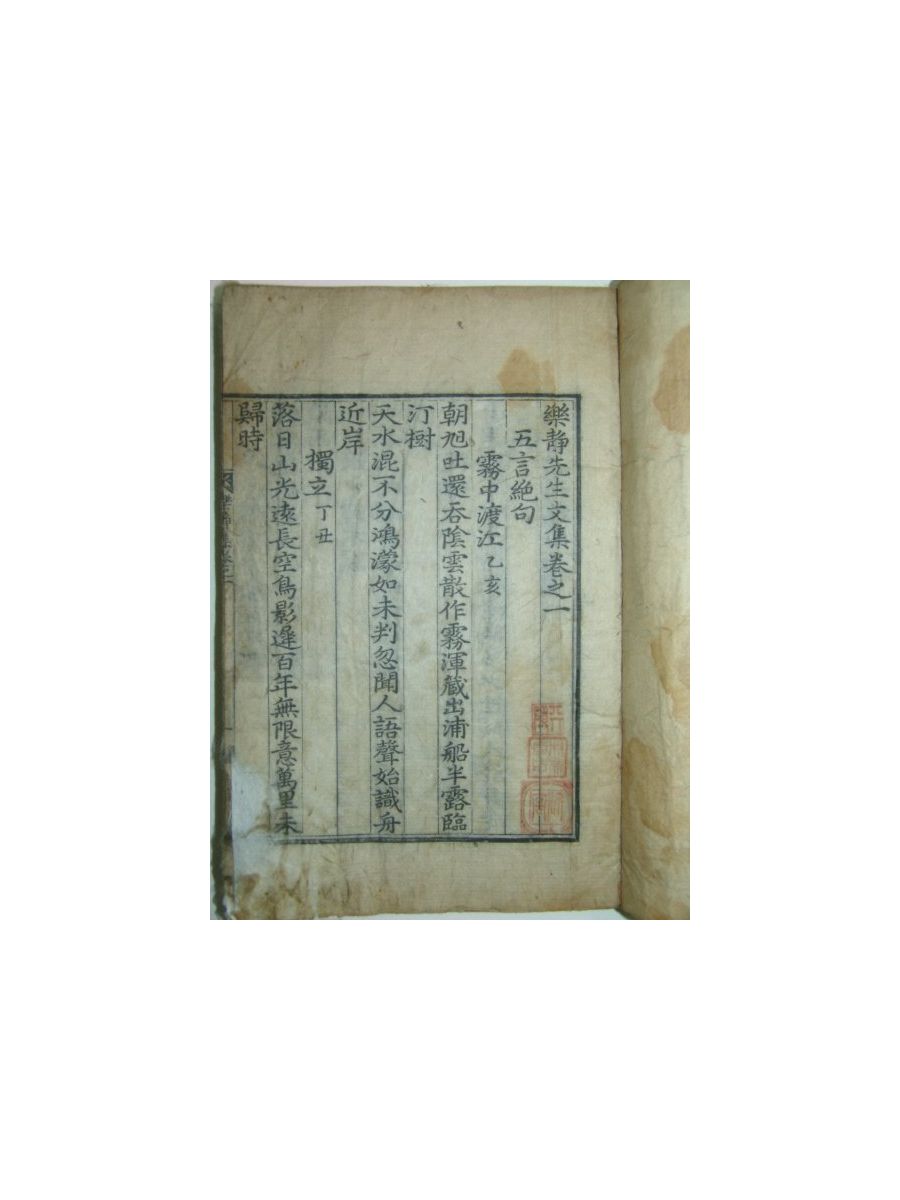 樂静先生文集卷之一
五言絶句
霧中渡江 乙亥
朝旭吐還吞陰雲散作霧渾蔵出浦船半露臨
汀樹
天水混不分鴻濛如未判忽聞人語聲始識舟
近岸
獨立 丁丑
落日山光遠長空鳥影遲百年無限意萬里未
歸時